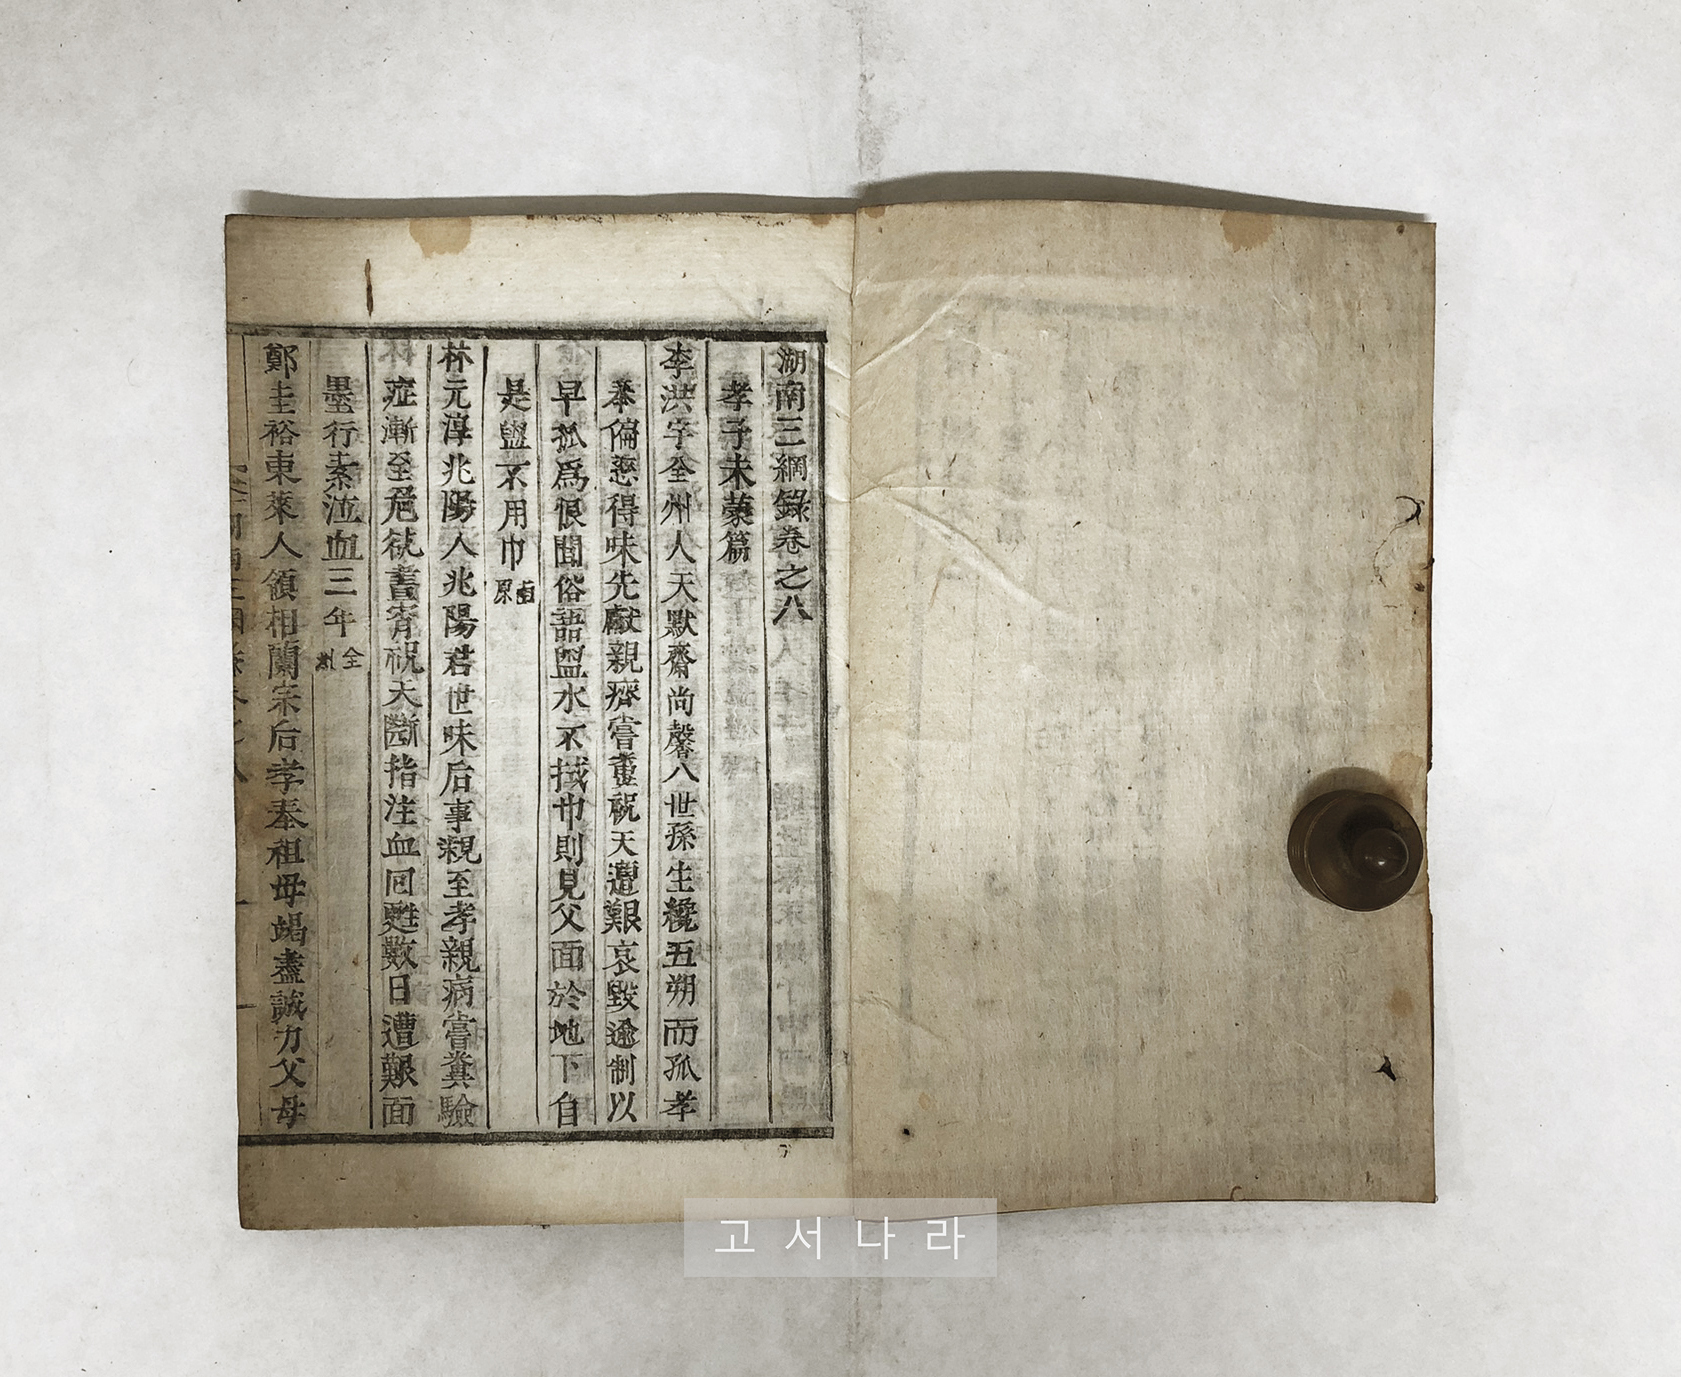 湖南三綱錄卷之八
孝子未蒙篇
李洪宇全州人天默齋尚馨八世孫生纔五朔而孤孝
奉偏慈得味先獻親癠嘗糞祝天遭艱哀毀逾制以
早孤爲恨聞俗語盥水不拭巾則見父面於地下自
是盥不用巾南原
林元淳兆陽人兆陽君世味后事親至孝親病嘗糞驗
症漸至危欲晝宵祝天斷指注血回甦數日遭艱面
墨行素泣血三年全州
鄭圭裕東萊人領相蘭宗后孝奉祖母竭盡誠力父母
고서나라